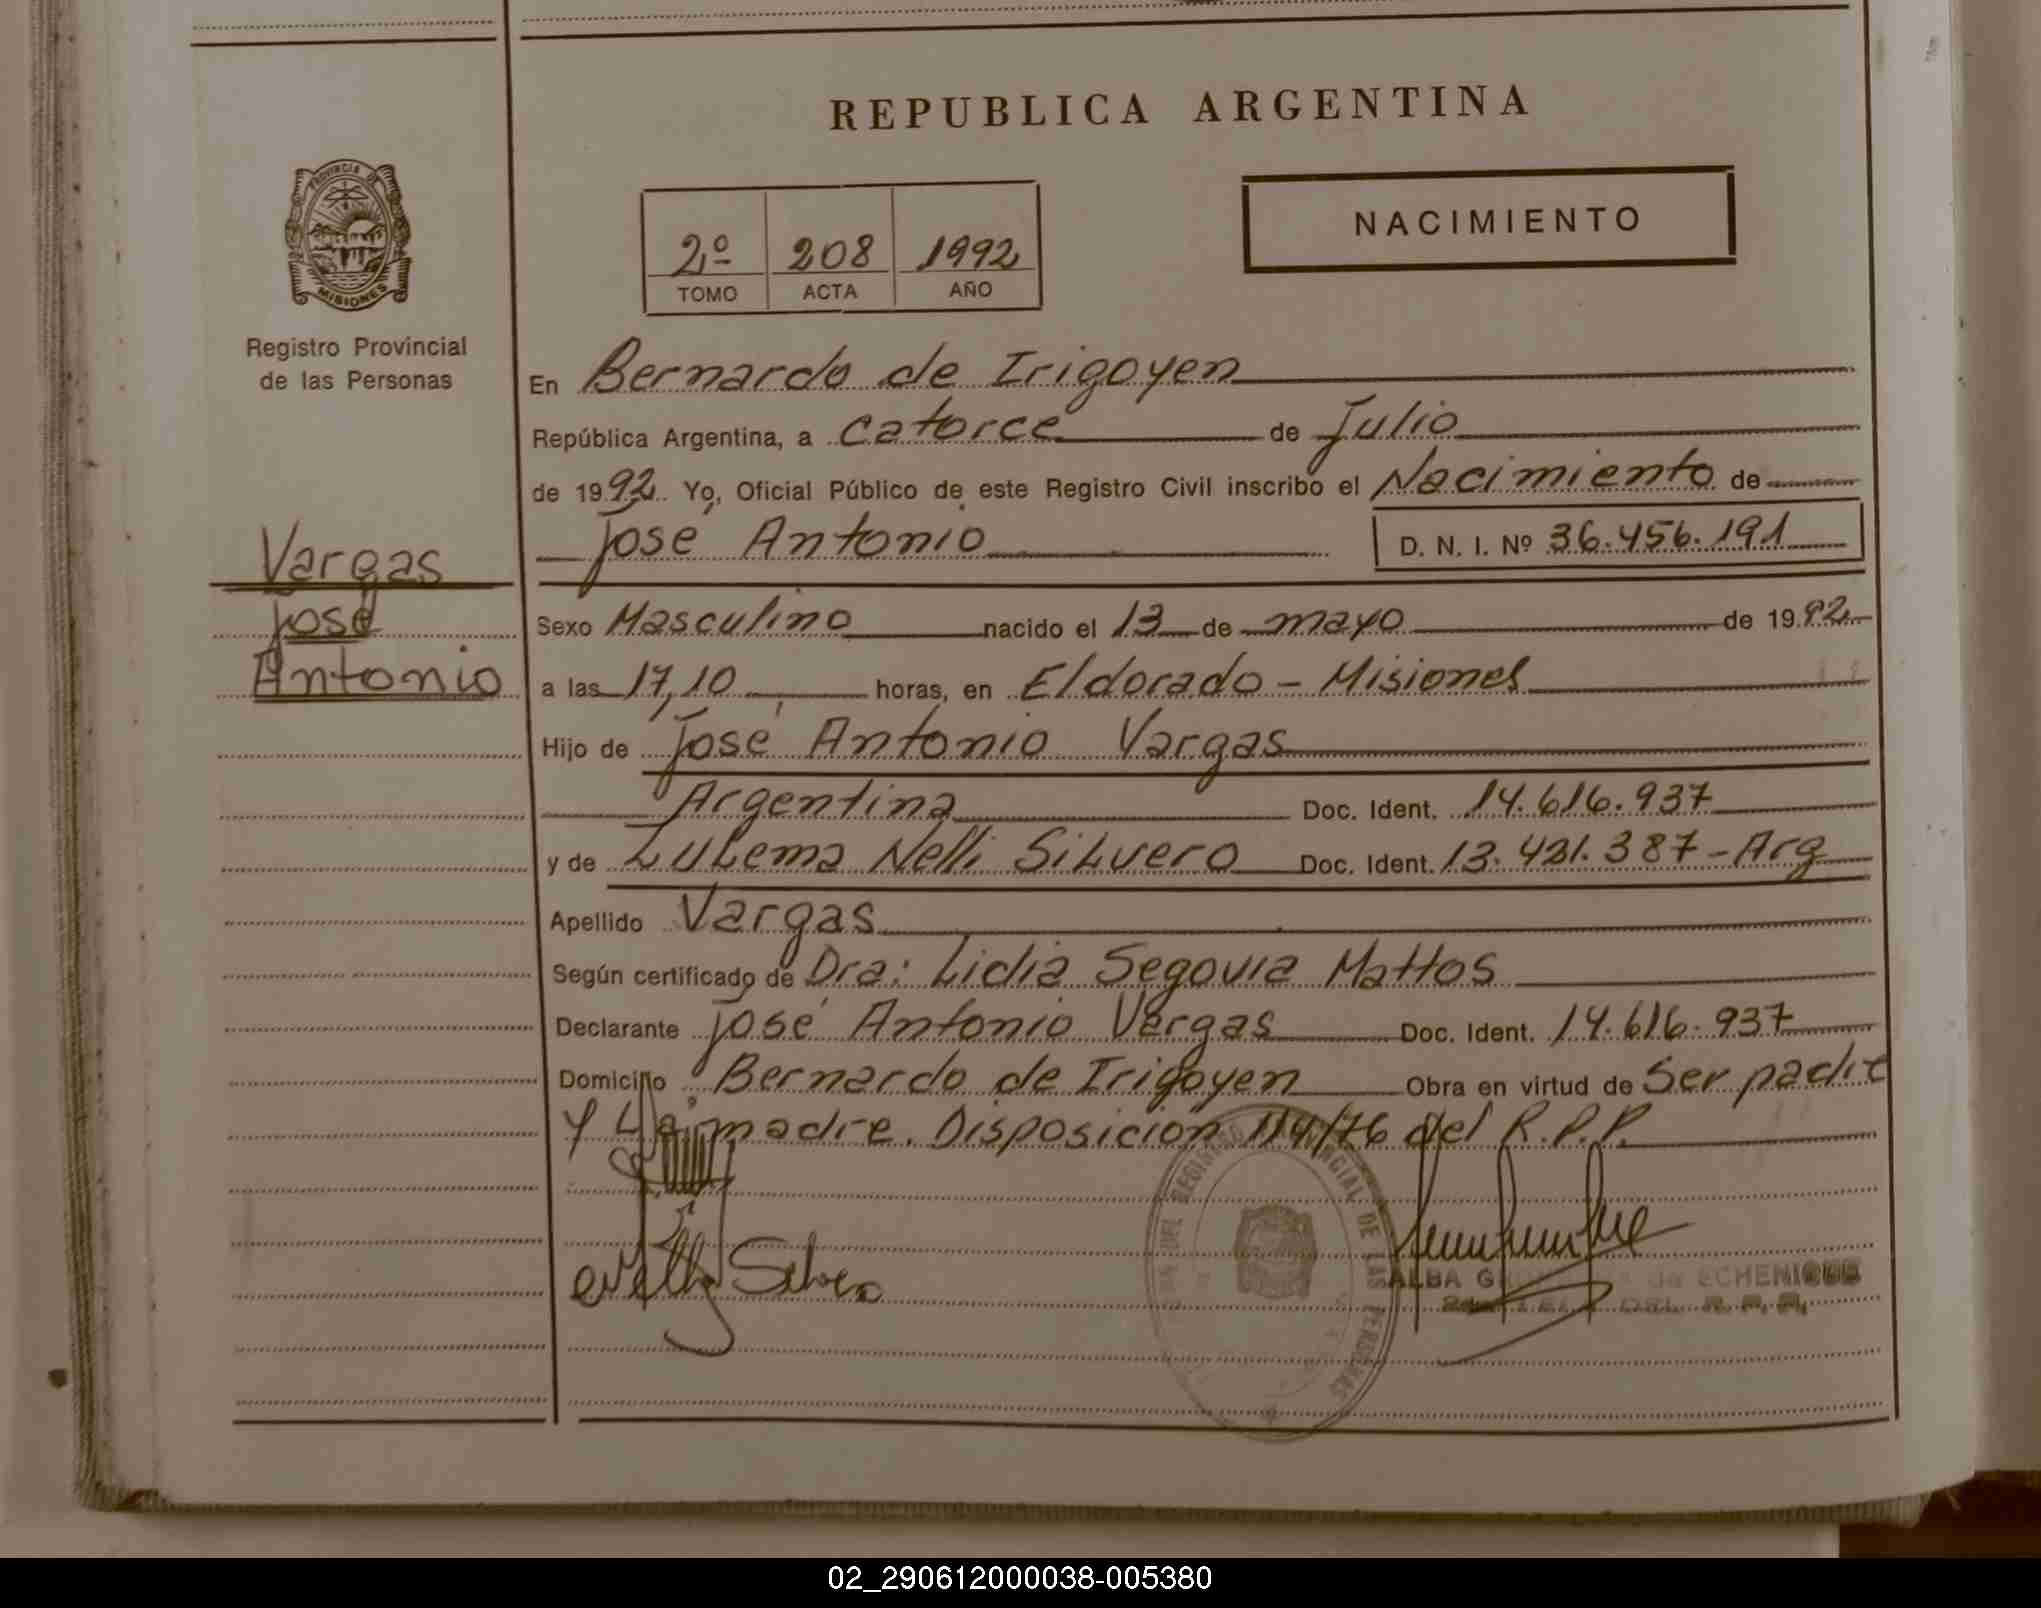 REPUBLICA ARGENTINA
PROVINCIA DE
MISIONES
Registro Provincial
de las Personas
2º 208 1992
TOMO ACTA AÑO
NACIMIENTO
En Bernardo de Irigoyen
República Argentina, a catorce de Julio
de 1992. Yo, Oficial Público de este Registro Civil inscribo el Nacimiento de
José Antonio D. N. I. Nº 36.456.191
Vargas
José
Antonio
Sexo Masculino nacido el 13 de mayo de 1992
a las 17,10 horas, en Eldorado - Misiones
Hijo de José Antonio Vargas
Argentina Doc. Ident. 14.616.937
y de Zulema Nelli Silvero Doc. Ident. 13.421.387 - Arg
Apellido Vargas
Según certificado de Dra: Lidia Segovia Mattos
Declarante José Antonio Vargas Doc. Ident. 14.616.937
Domicilio Bernardo de Irigoyen Obra en virtud de Ser padre
Y La madre. Disposición 114/76 del R.P.P.
REGISTRO PROVINCIAL DE LAS PERSONAS
Silvero
ALBA de ECHENIQUE
DEL R.P.P.
02_290612000038-005380